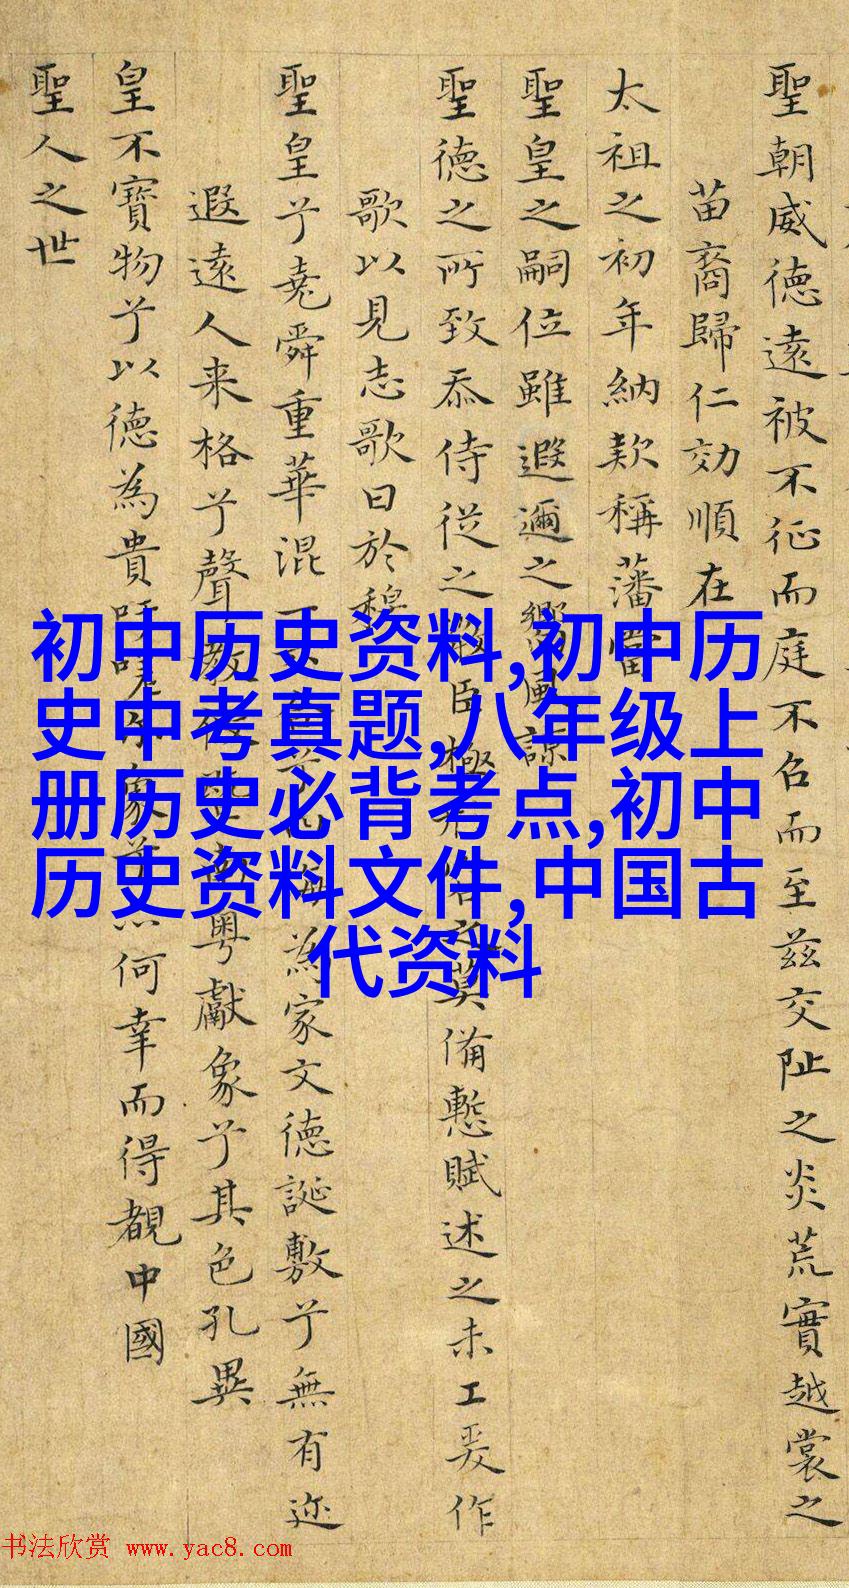 聖朝威徳遠被不征而庭不召而至茲交阯之炎荒實越裳之
苗裔歸仁効順在
太祖之初年納款稱藩當
聖皇之嗣位雖遐邇之嚮風諒
聖徳之所致忝侍從之散臣極之莫備慙賦述之未工爰作
歌以見志歌曰於穆
聖皇兮堯舜重華混為家文徳誕敷兮無有迩
遐遠人来格兮聲教粤獻象兮其色孔異
皇不寶物兮以徳為貴吁嗟象何幸而得覩中國
聖人之世
初中历史资料,初中历
史中考真题,八年级上
册历史必背考点,初中
历史资料文件,中国古
代资料
书法欣赏 www.yac8.com